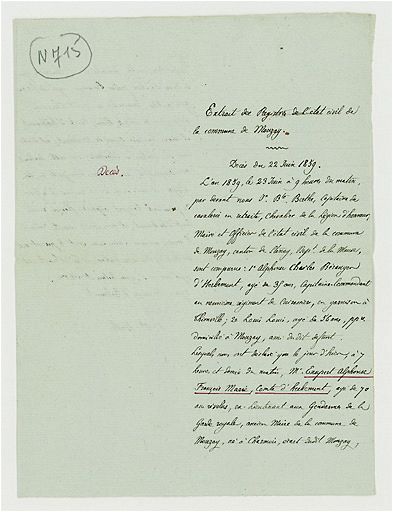 N 715
Extrait des Registres de l'état civil de
la commune de Mouzay.
Décès.
Décès du 22 Juin 1839.
L'an 1839, le 23 Juin à 9 heures du matin,
par devant nous Bte. Berthe, Capitaine de
cavalerie en retraite, Chevalier de la Légion d'honneur,
Maire et Officier de l'état civil de la commune
de Mouzay, canton de Stenay, Dépt. de la Meuse,
sont comparus: 1° Alphonse Charles
d'Herbemont, agé de 35 ans, Capitaine Commandant
au neuvième régiment de Cuirassiers, en garnison à
Thionville; 2° Louis Louis, agé de 56 ans,
domicilié à Mouzay, ami du dit défunt.
Lesquels nous ont déclaré que le jour d'hier, à 7
heures et demie du matin, Mr.
François Marie, Comte d'Herbemont, agé de 70
ans révolus, ex-Lieutenant aux Gendarmes de la
Garde royale, ancien Maire de la commune de
Mouzay, né à Charmois, écart dudit Mouzay,